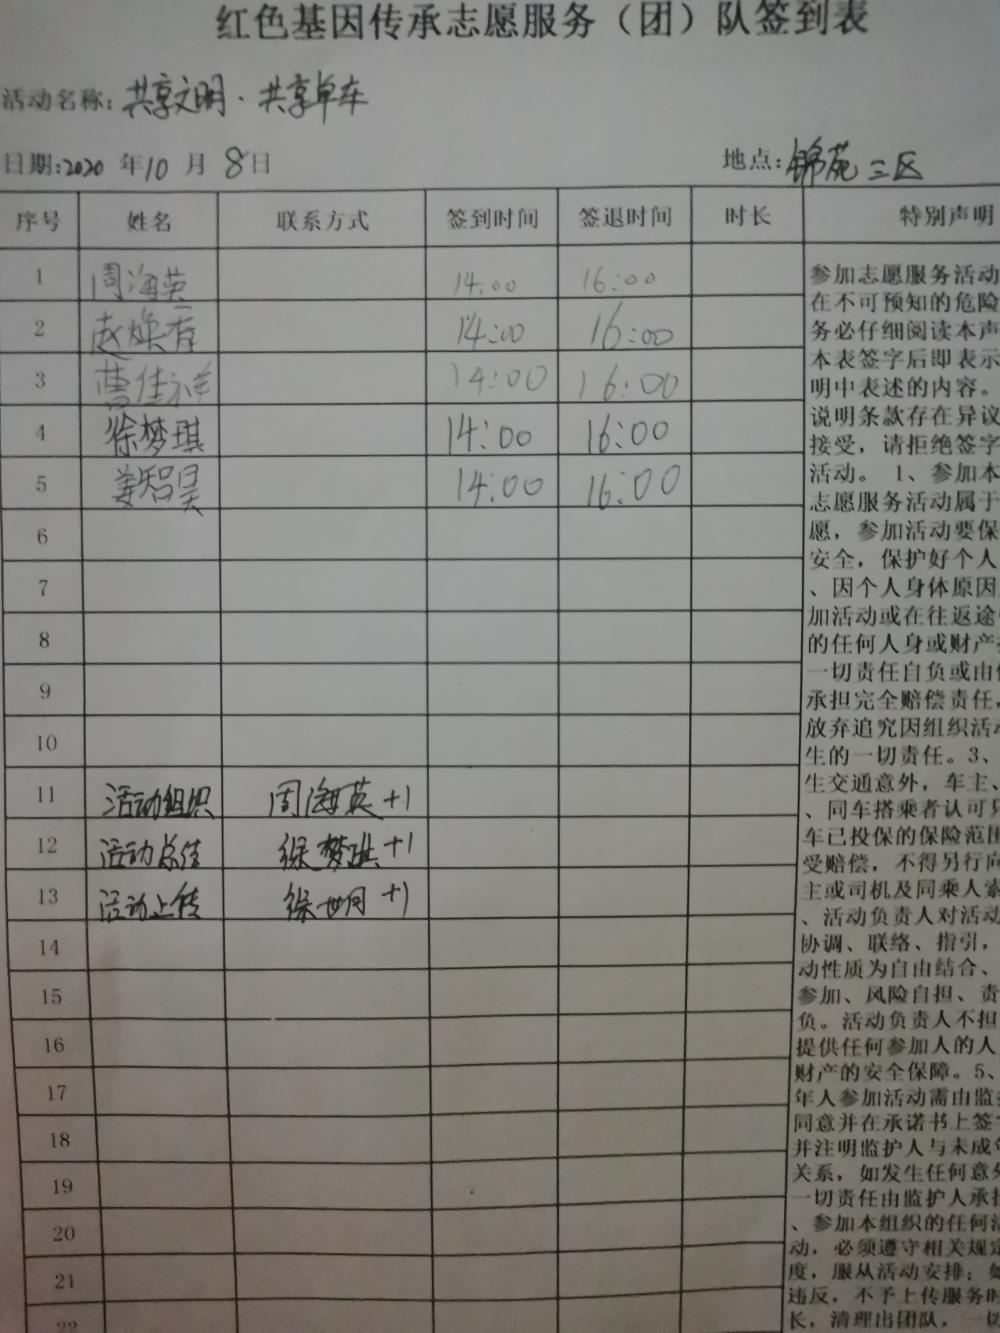 红色基因传承志愿服务（团）队签到表
活动名称: 共享文明·共享单车
日期:2020 年10 月 8日 地点: 锦苑三区
序号 姓名 联系方式 签到时间 签退时间 时长 特别声明
1 周海英 14:00 16:00
2 赵焕有 14:00 16:00
3 曹佳祥 14:00 16:00
4 徐梦琪 14:00 16:00
5 姜智昊 14:00 16:00
6
7
8
9
10
11 活动组织 周海英+1
12 活动总结 徐梦琪+1
13 活动上传 徐世月+1
14
15
16
17
18
19
20
21
22
参加志愿服务活动
在不可预知的危险
务必仔细阅读本声
本表签字后即表示
明中表述的内容。
说明条款存在异议
接受，请拒绝签字
活动。 1、参加本
志愿服务活动属于
愿，参加活动要保
安全，保护好个人
、因个人身体原因
加活动或在往返途
的任何人身或财产
一切责任自负或由
承担完全赔偿责任，
放弃追究因组织活动
生的一切责任。3、
生交通意外，车主、
、同车搭乘者认可只
车已投保的保险范围
受赔偿，不得另行向
主或司机及同乘人索
、活动负责人对活动
协调、联络、指引，
动性质为自由结合、
参加、风险自担、责
负。活动负责人不担
提供任何参加人的人
财产的安全保障。5、
年人参加活动需由监
同意并在承诺书上签
并注明监护人与未成
关系，如发生任何意外
一切责任由监护人承担
、参加本组织的任何活
动，必须遵守相关规定
度，服从活动安排；如
违反，不予上传服务时
长，清理出团队，一切